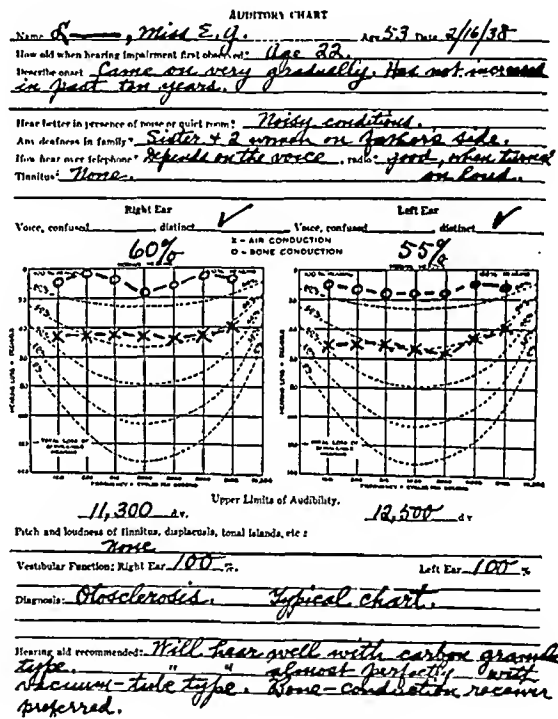 AUDITORY CHART
Name L——, Miss E. Y. Age 53 Date 2/16/38
How old when hearing impairment first observed? Age 22.
Describe onset Came on very gradually. Has not increased
in past ten years.
Hear better in presence of noise or quiet room? Noisy conditions.
Any deafness in family? Sister + 2 women on father's side.
How hear over telephone? Depends on the voice, radio? good, when turned
Tinnitus? None. on loud.
Right Ear Left Ear
Voice, confused distinct ✓ Voice, confused distinct ✓
60% X - AIR CONDUCTION 55%
O - BONE CONDUCTION
HEARING LOSS - DECIBELS
TOTAL LOSS OF
FREQUENCY - CYCLES PER SECOND
Upper Limits of Audibility.
11,300 d v. 12,500 d v
Pitch and loudness of tinnitus, diplacusis, tonal islands, etc:
None
Vestibular Function: Right Ear 100 %. Left Ear 100 %
Diagnosis: Otosclerosis. Typical chart.
Hearing aid recommended: Will hear well with carbon granule
type. " " almost perfectly with
vacuum-tube type. Bone-conduction receiver
preferred.